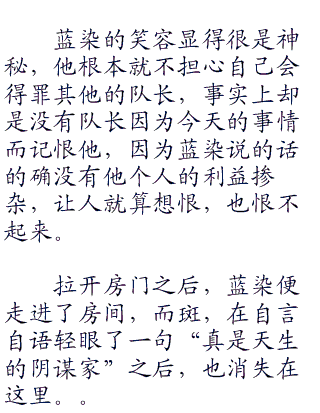 蓝染的笑容显得很是神
秘，他根本就不担心自己会
得罪其他的队长，事实上却
是没有队长因为今天的事情
而记恨他，因为蓝染说的话
的确没有他个人的利益掺
杂，让人就算想恨，也恨不
起来。
拉开房门之后，蓝染便
走进了房间，而斑，在自言
自语轻眼了一句“真是天生
的阴谋家”之后，也消失在
这里。。